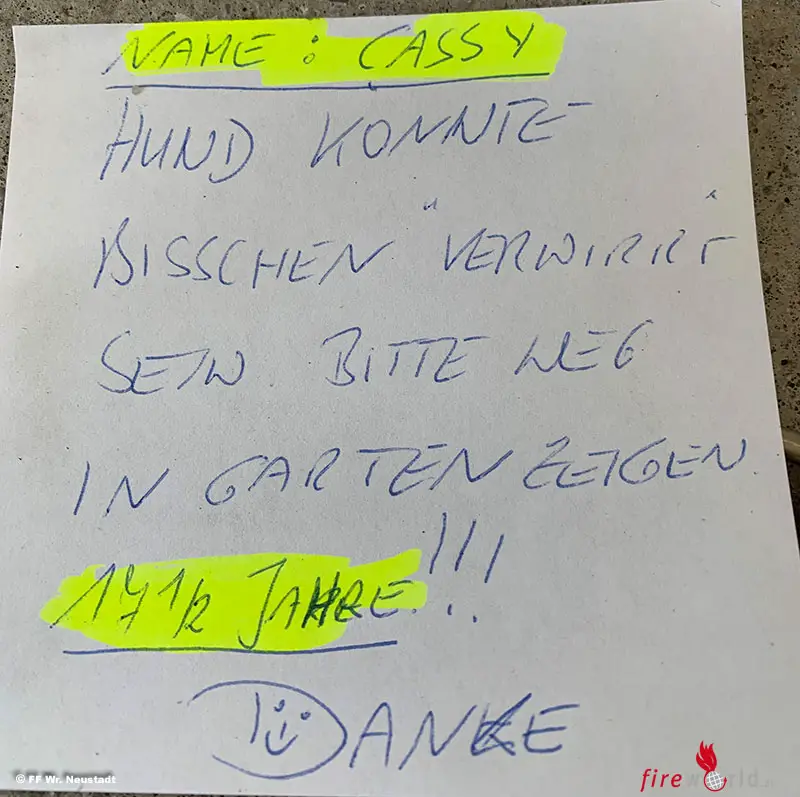 NAME : CASSY
HUND KONNTE
BISSCHEN "VERWIRRT"
SEIN. BITTE WEG
IN GARTEN ZEIGEN.
17 1/2 JAHRE!!!
DANKE
© FF Wr. Neustadt
fireworld.at